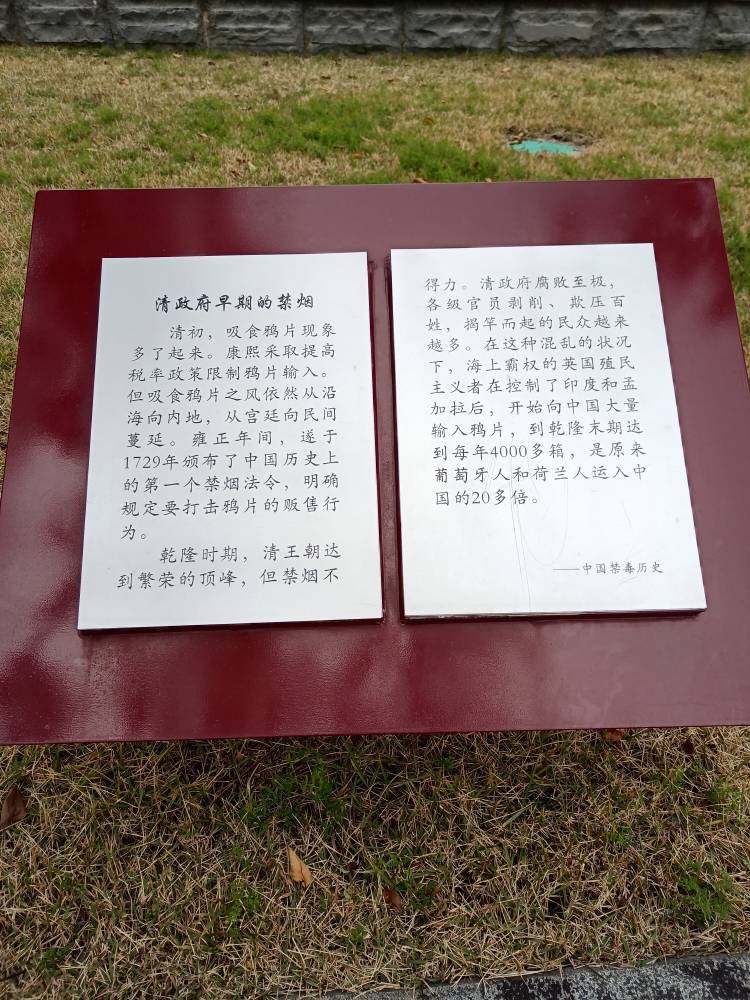 清政府早期的禁烟
清初，吸食鸦片现象
多了起来。康熙采取提高
税率政策限制鸦片输入。
但吸食鸦片之风依然从沿
海向内地，从宫廷向民间
蔓延。雍正年间，遂于
1729年颁布了中国历史上
的第一个禁烟法令，明确
规定要打击鸦片的贩售行
为。
乾隆时期，清王朝达
到繁荣的顶峰，但禁烟不
得力。清政府腐败至极，
各级官员剥削、欺压百
姓，揭竿而起的民众越来
越多。在这种混乱的状况
下，海上霸权的英国殖民
主义者在控制了印度和孟
加拉后，开始向中国大量
输入鸦片，到乾隆末期达
到每年4000多箱，是原来
葡萄牙人和荷兰人运入中
国的20多倍。
——中国禁毒历史